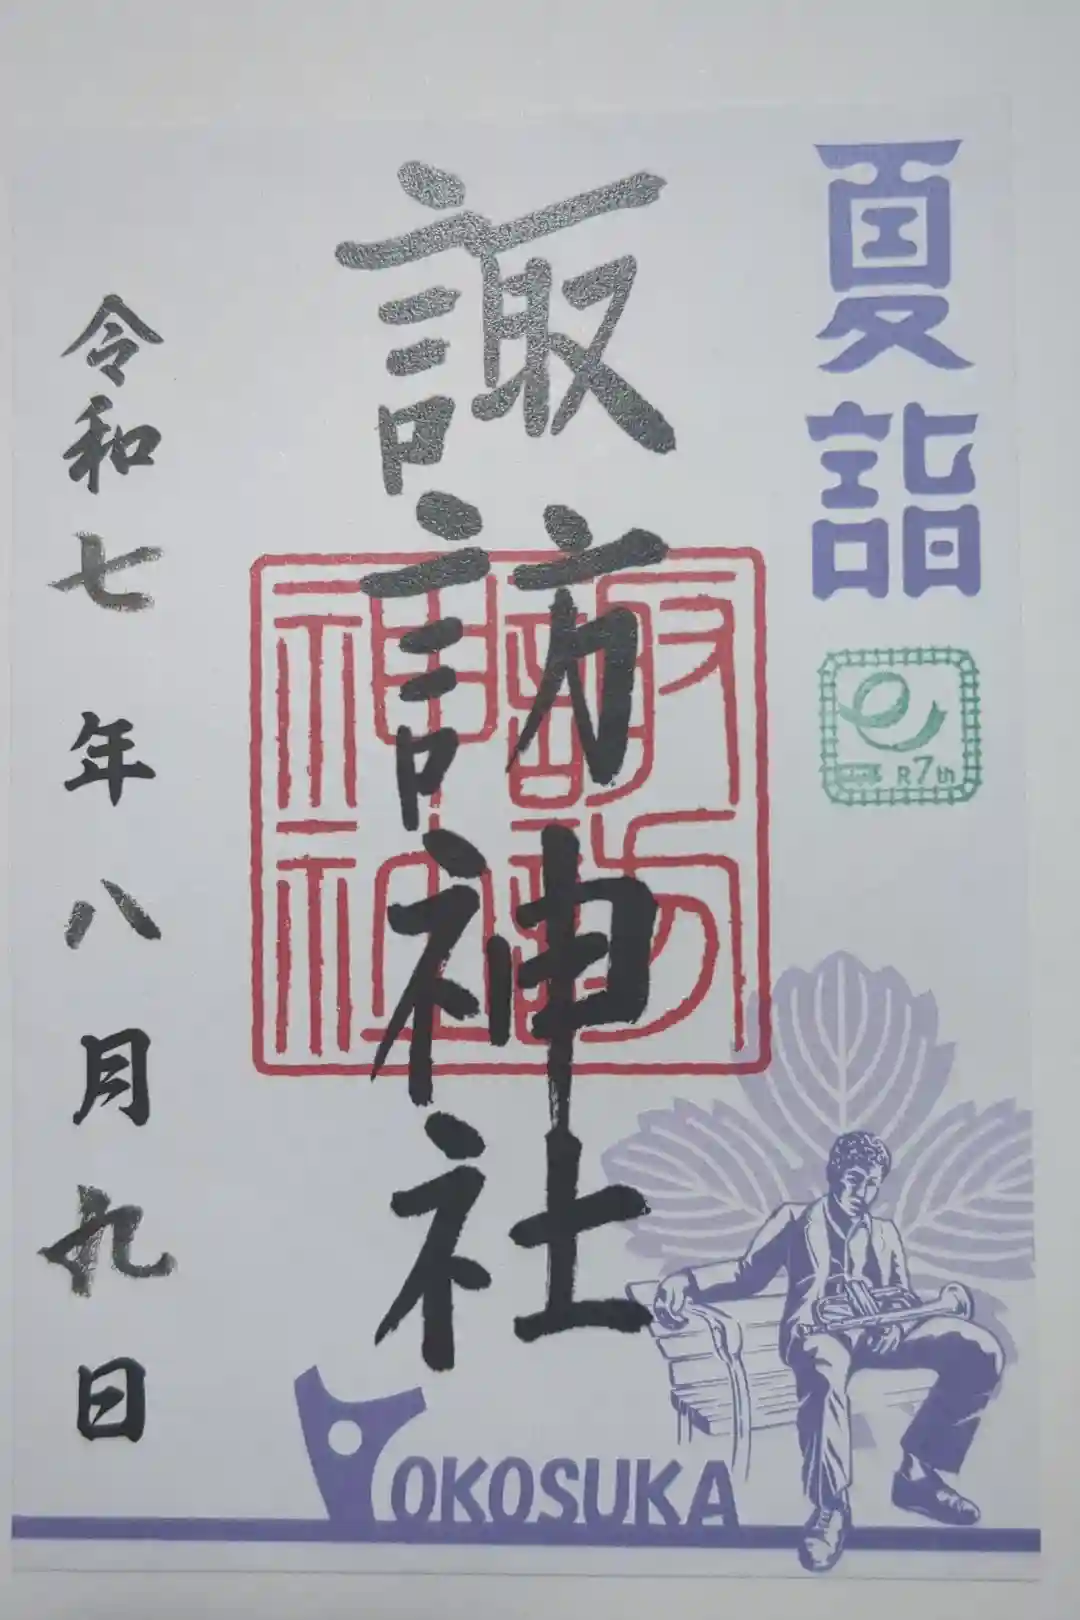 夏詣
R7th
諏訪神社
諏訪
神社
令和七年八月九日
YOKOSUKA